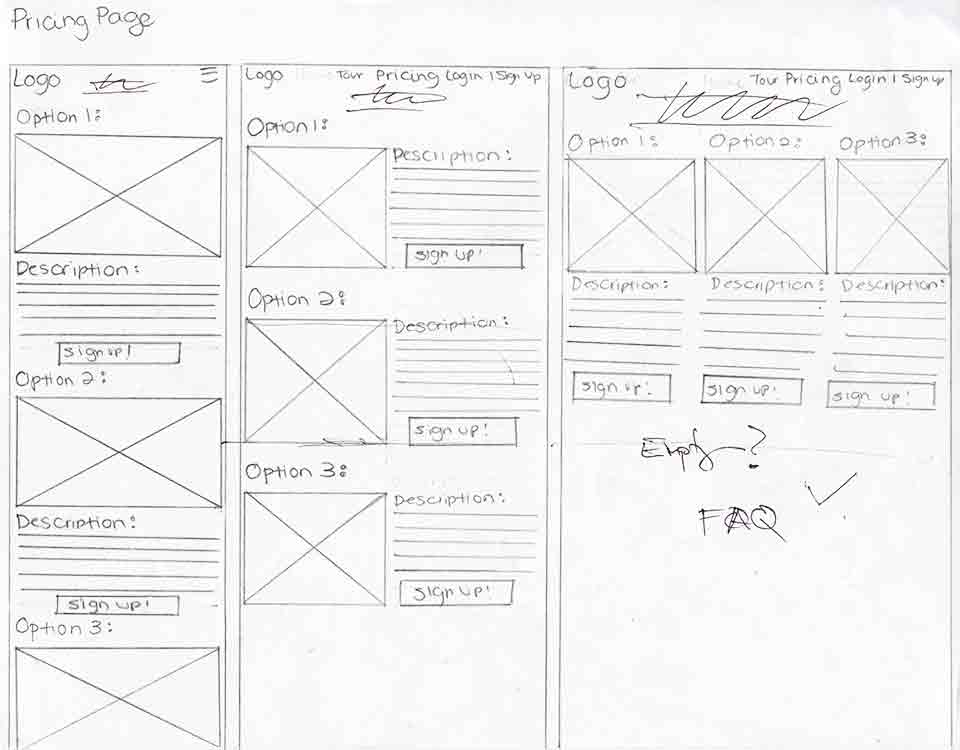 Pricing Page
Logo
Option 1:
Description:
sign up!
Option 2:
Description:
sign up!
Option 3:
Logo Tour Pricing Login | Sign up
Option 1:
Description:
sign up!
Option 2:
Description:
sign up!
Option 3:
Description:
sign up!
Logo Tour Pricing Login | Sign up
Option 1: Option 2: Option 3:
Description: Description: Description:
sign up! sign up! sign up!
Empty?
FAQ